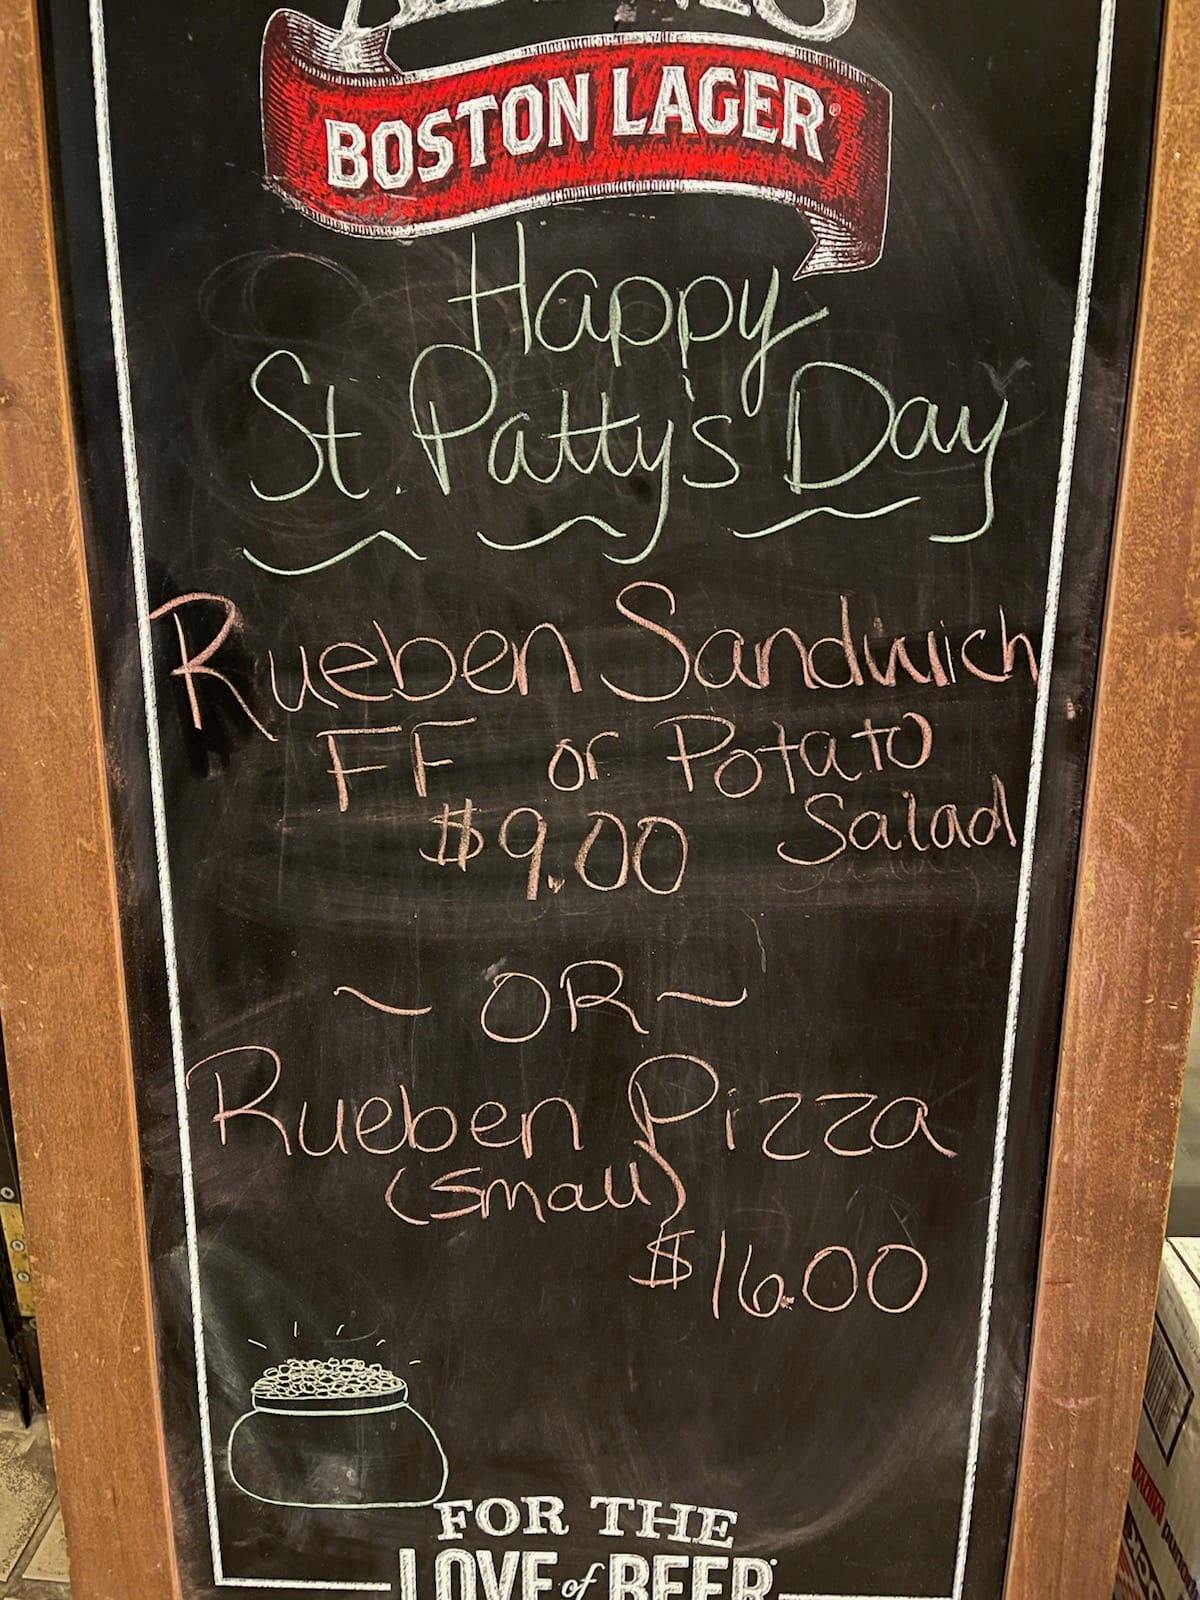 BOSTON LAGER®
Happy
St. Patty's Day
Rueben Sandwich
FF or Potato
$9.00 Salad
~ OR ~
Rueben Pizza
(small)
$16.00
FOR THE
LOVE of BEER